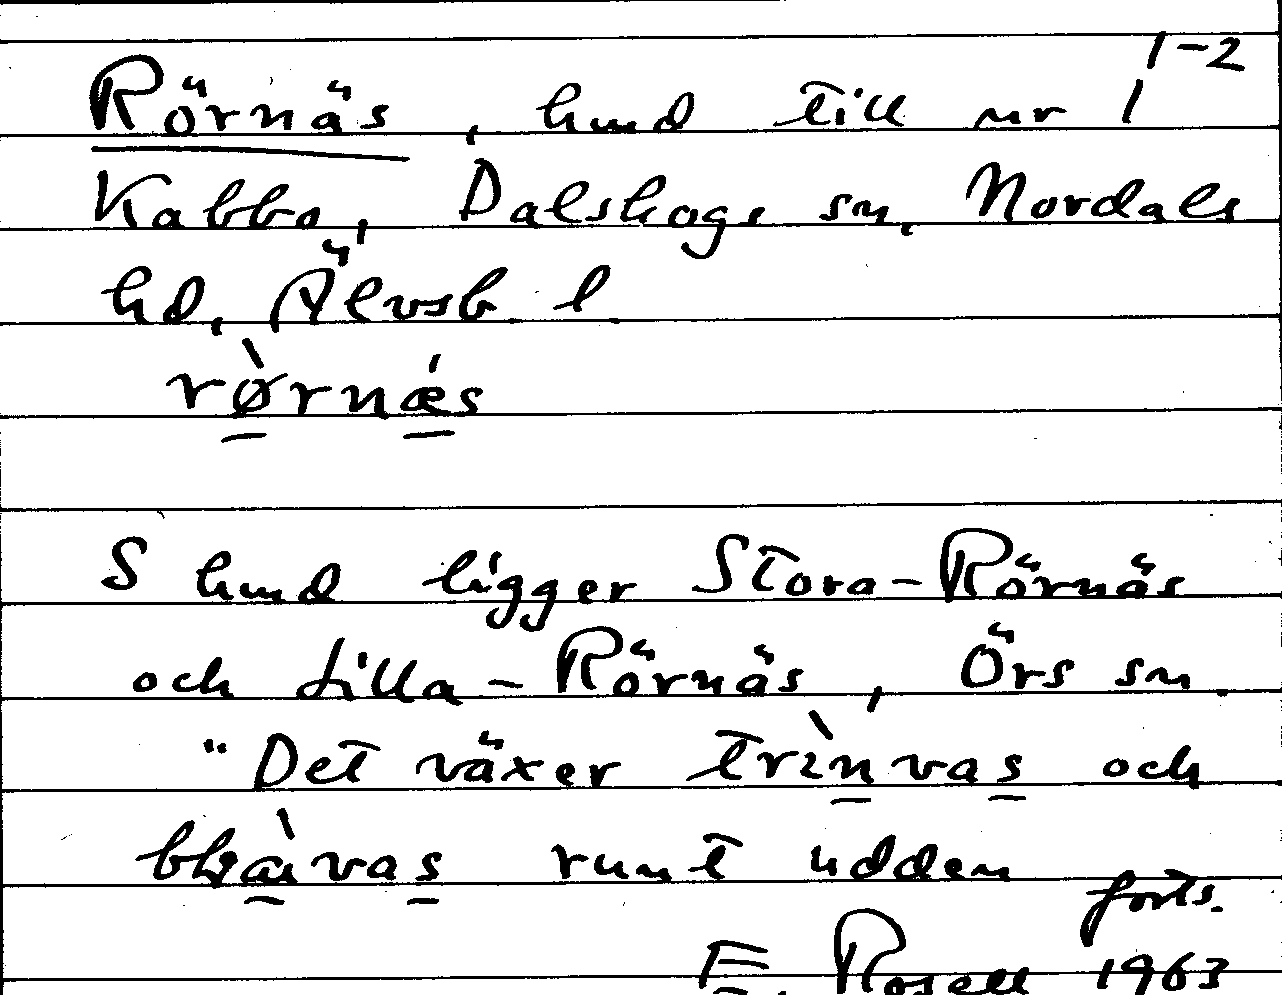 1-2
Rörnäs, hmd till nr 1
Kabbo, Dalskogs sn, Nordals
hd, Älvsb. l.
rø̀rnǽs
S hmd ligger Stora-Rörnäs
och Lilla-Rörnäs, Örs sn.
"Det växer trìnvas och
runt udden
forts.
E. Rosell 1963